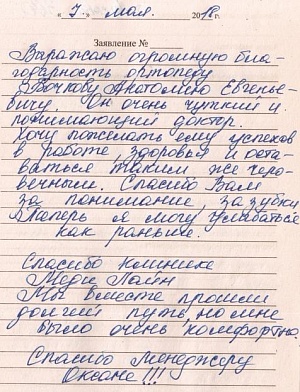 « 7. » мая. 2018 г.
Заявление №
Выражаю огромную бла-
годарность ортопеду
Анатолию Евгенье-
вичу. Он очень чуткий и
понимающий доктор.
Хочу пожелать ему успехов
в работе, здоровья и оста-
ваться таким же чело-
вечным. Спасибо Вам
за понимание, за зубки
Теперь я могу улыбаться
как раньше.
Спасибо клинике
Меди Лайн
Мы вместе прошли
долгий путь, но мне
было очень комфортно.
Спасибо Менеджеру
Оксане!!!